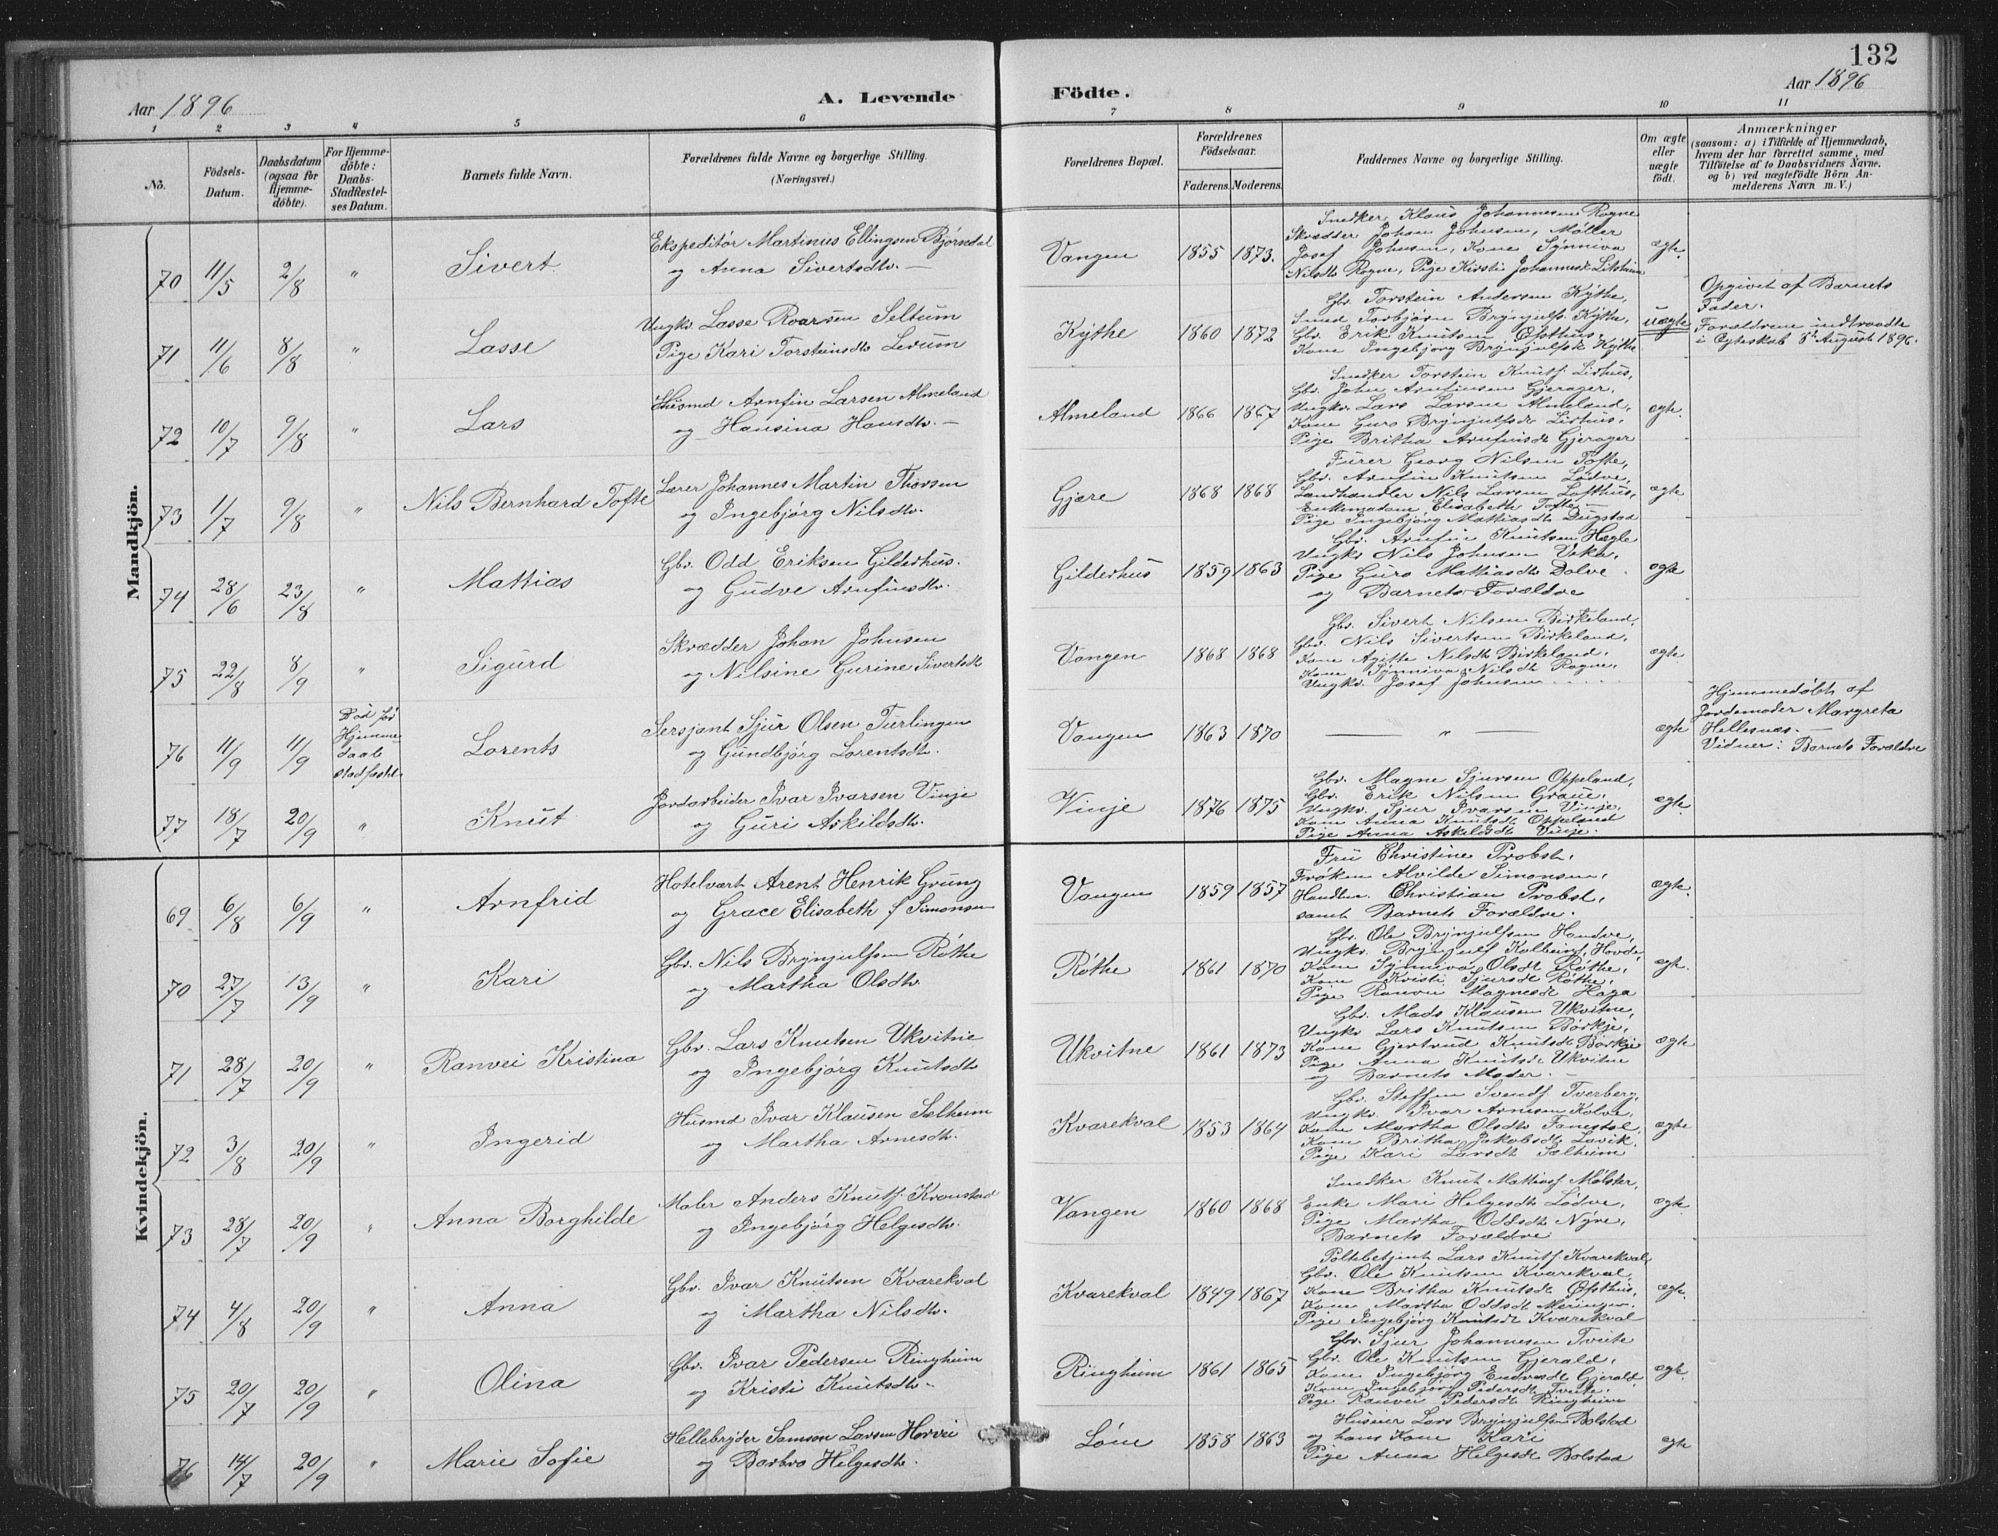 132
Aar 1896
A. Levende Födte.
Aar 1896
1 2 3 4 5 6 7 8 9 10 11
No.
Födsels-Datum.
Daabsdatum (ogsaa for Hjemmedöbte).
For Hjemmedöbte: Daabs-Stadfæstelses Datum.
Barnets fulde Navn.
Forældrenes fulde Navne og borgerlige Stilling.
(Næringsvei.)
Forældrenes Bopæl.
Forældrenes Födselsaar.
Faderens. Moderens.
Faddernes Navne og borgerlige Stilling.
Om ægte eller uægte födt.
Anmærkninger
(saasom: a) i Tilfælde af Hjemmedaab, hvem der har forrettet samme, med Tilföielse af to Daabsvidners Navne. og b) ved uægtefödte Börn Anmelderens Navn m. V.)
Mandkjön.
70 11/5 2/8 " Sivert
Ekspeditör Martinus Ellingsen Björndal
og Anna Sivertsdtr. —
Vangen 1855 1873.
Snedker Klaus Johannesen Rogne
Skrædder Johan Johnsen, Möller
Josef Johnsen, Kone Synniva
Nilsdt Rogne, Pige Kirsti Johannesdt
ægte
71 11/6 8/8 " Lasse
Ungkr Lasse Roarsen Seltum
Pige Kari Torsteinsdt Levum
Kÿthe 1860 1872
Gbr. Torstein Andersen Kÿthe,
Smed Torbjörn Brynjulfs. Kÿthe,
Gbr. Erik Knutsen Öfsthus,
Kone Ingebjörg Brynjulfsdt Kÿthe
uægte
Opgivet af Barnets
Fader.
Forældrene indtraadte
i Egteskab 8d August 1896.
72 10/7 9/8 " Lars
Arnfin Larsen Almeland
og Hansina Hansdtr. —
Almeland 1866 1867
Snedker Torstein Knutf Lirhus,
Gbr. John Arnfinsen Gjerager,
Ungkr. Lars Larsen Almeland,
Kone Guro Brynjulfsdt Lirhus,
Pige Britha Arnfinsdt Gjerager
ægte.
73 11/7 9/8 " Nils Bernhard Tofte
Lærer Johannes Martin Thorsen
og Ingebjörg Nilsdtr.
Gjære 1868 1868
Furer Georg Nilsen Tofte,
Gbr. Arnfin Knutsen Lödve,
Landhandler Nils Larsen Lofthus,
Enkemadam Elisabeth Tofte
Pige Ingebjörg Mattiasdt Dugstad
ægte
74 28/6 23/8 " Mattias
Gbr. Odd Eriksen Gilderhus.
og Gudve Arnfinsdtr.
Gilderhus 1859 1863
Gbr. Arnfin Knutsen Hægle
Ungkr Nils Johnsen Urka.
Pige Guro Mattiasdt Dolve
og Barnets Forældre
ægte
75 22/8 8/9 " Sigurd
Skrædder Johan Johnsen
og Nilsine Gurine Sivertsdt
Vangen 1868 1868
Gbr. Sivert Nilsen Birkeland,
Gbr. Nils Sivertsen Birkeland,
Kone Agitte Nilsdt Birkeland,
Kone Synniva Nilsdt Rogne,
Ungkr. Josef Johnsen
ægte
76 11/9 11/9 Död för Hjemmedaab stadfæstet Lorents
Sersjant Sjur Olsen Turlingen
og Gundbjörg Lorentsdtr.
Vangen 1863 1870
— " —
ægte
Hjemmedöbt af
Jordemoder Margreta
Hellesnæs. —
Vidner: Barnets Forældre
77 18/7 20/9 " Knut
Jordarbeider Ivar Ivarsen Vinje
og Guri Askildsdtr.
Vinje 1876 1875
Gbr. Magne Sjursen Oppeland,
Gbr. Erik Nilsen Graue,
Ungkr. Sjur Ivarsen Vinje,
Kone Anna Knutsdt Oppeland
Pige Anna Askildsdt Vinje.
ægte.
Kvindekjön.
69 6/8 6/9 " Arnfrid
Hotelvært Arent Henrik Grung
og Grace Elisabeth f Simonsen
Vangen 1859 1857
Fru Christine Probst,
Fröken Alvilde Simonsen,
Handlm. Christian Probst,
samt Barnets Forældre.
ægte.
70 27/7 13/9 " Kari
Gbr. Nils Brynjulfsen Röthe
og Martha Olsdtr.
Röthe 1861 1870
Gbr. Ole Brynjulfsen Handve,
Ungkr. Brynjulf Kolbeinsf. Hovde
Kone Synniva Olsdt Röthe,
Kone Kristi Sjursdt Röthe,
Pige Ranvei Magnesdt Haga
ægte.
71 28/7 20/9 " Ranvei Kristina
Gbr. Lars Knutsen Ukvitne
og Ingebjörg Knutsdtr
Ukvitne 1861 1873
Gbr. Mads Klausen Ukvitne,
Ungkr Lars Knutsen Börkje,
Kone Gjertrud Knutsdt Börkje
Pige Anna Knutsdt Ukvitne
og Barnets Moder. —
ægte
72 3/8 20/9 " Ingerid
Husmd Ivar Klausen Sælheim
og Martha Arnesdtr.
Kvarekval 1853 1864
Gbr. Steffen Svendf Tverberg,
Ungkr. Ivar Arnesen Kolve,
Kone Martha Olsdt Fenestal,
Kone Britha Jakobsdt Lavik,
Pige Kari Larsdt Sælheim
ægte
73 28/7 20/9 " Anna Borghilde
Maler Anders Knutf. Kronstad
og Ingebjörg Helgesdtr.
Vangen 1860 1868
Snedker Knut Mattiasf Mölster,
Enke Mari Helgesdt Lödve,
Pige Martha Oddsdt Nyre,
Barnets Forældre
ægte.
74 4/8 20/9 " Anna
Gbr. Ivar Knutsen Kvarekval
og Martha Nilsdtr.
Kvarekval 1849 1867
Politibetjent Lars Knutf. Kvarekval,
Gbr. Ole Knutsen Kvarekval,
Kone Britha Knutsdt Öfsthus,
Kone Martha Oddsdt Meringen
Pige Ingebjörg Knutsdt Kvarekval
ægte.
75 20/7 20/9 " Olina
Gbr. Ivar Pedersen Ringheim
og Kristi Knutsdtr.
Ringheim 1861 1865
Gbr. Sjur Johannesen Tveite
Gbr. Ole Knutsen Gjerald,
Kone Ingebjörg Endresdt Gjerald
Kone Ingebjörg Pedersdt Tveite.
Pige Ranvei Pedersdt Ringheim
ægte.
76 14/7 20/9 " Marie Sofie
Hellebryder Samson Larsen Horvei
og Barbro Helgesdtr.
Löm 1858 1863
Huseier Lars Brynjulfsen Bolstad
og hans Kone Kari
Pige Anna Helgesdt Bolstad
ægte